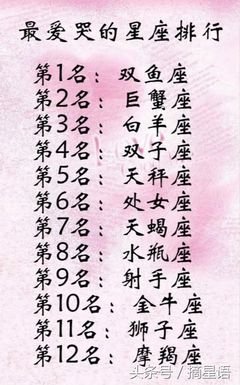 最爱哭的星座排行
第1名：双鱼座
第2名：巨蟹座
第3名：白羊座
第4名：双子座
第5名：天秤座
第6名：处女座
第7名：天蝎座
第8名：水瓶座
第9名：射手座
第10名：金牛座
第11名：狮子座
第12名：摩羯座
头条号/摘星语